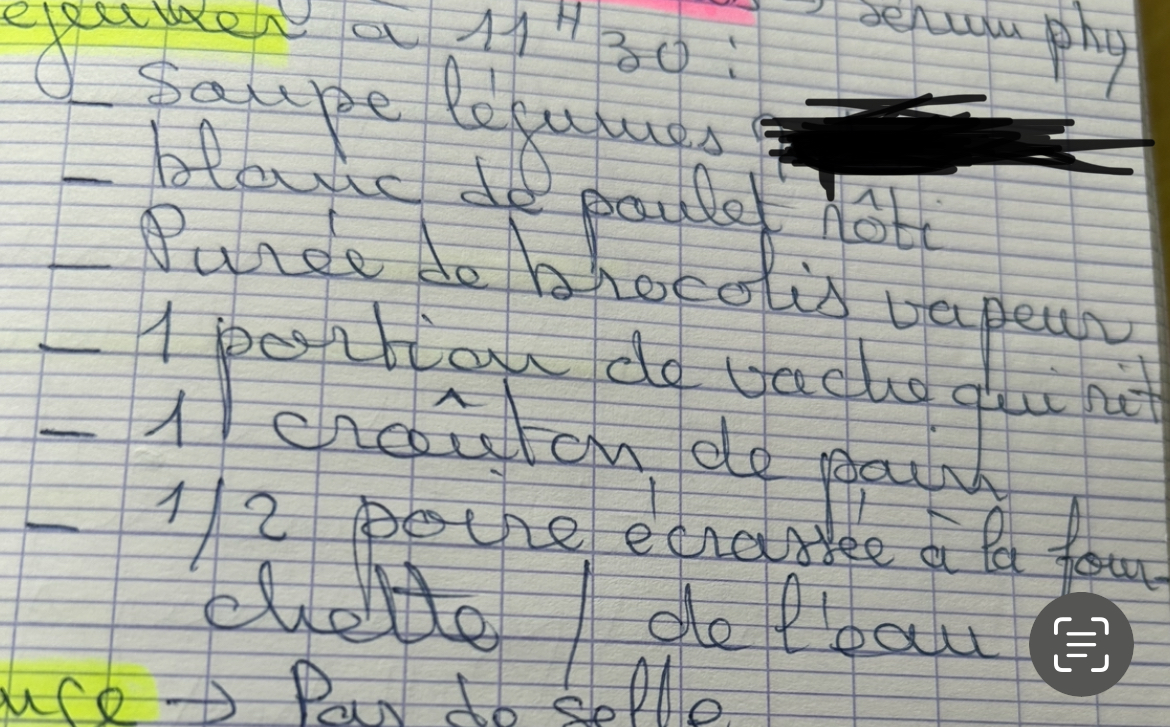 ejeuner à 11H30 : → serum phy
- Soupe légumes
- blanc de poulet rôti
- Purée de brocolis vapeur
- 1 portion de vache qui rit
- 1 croûton de pain
- 1/2 poire écrassée à la four-
chette / de l'eau
→ Pas de selle